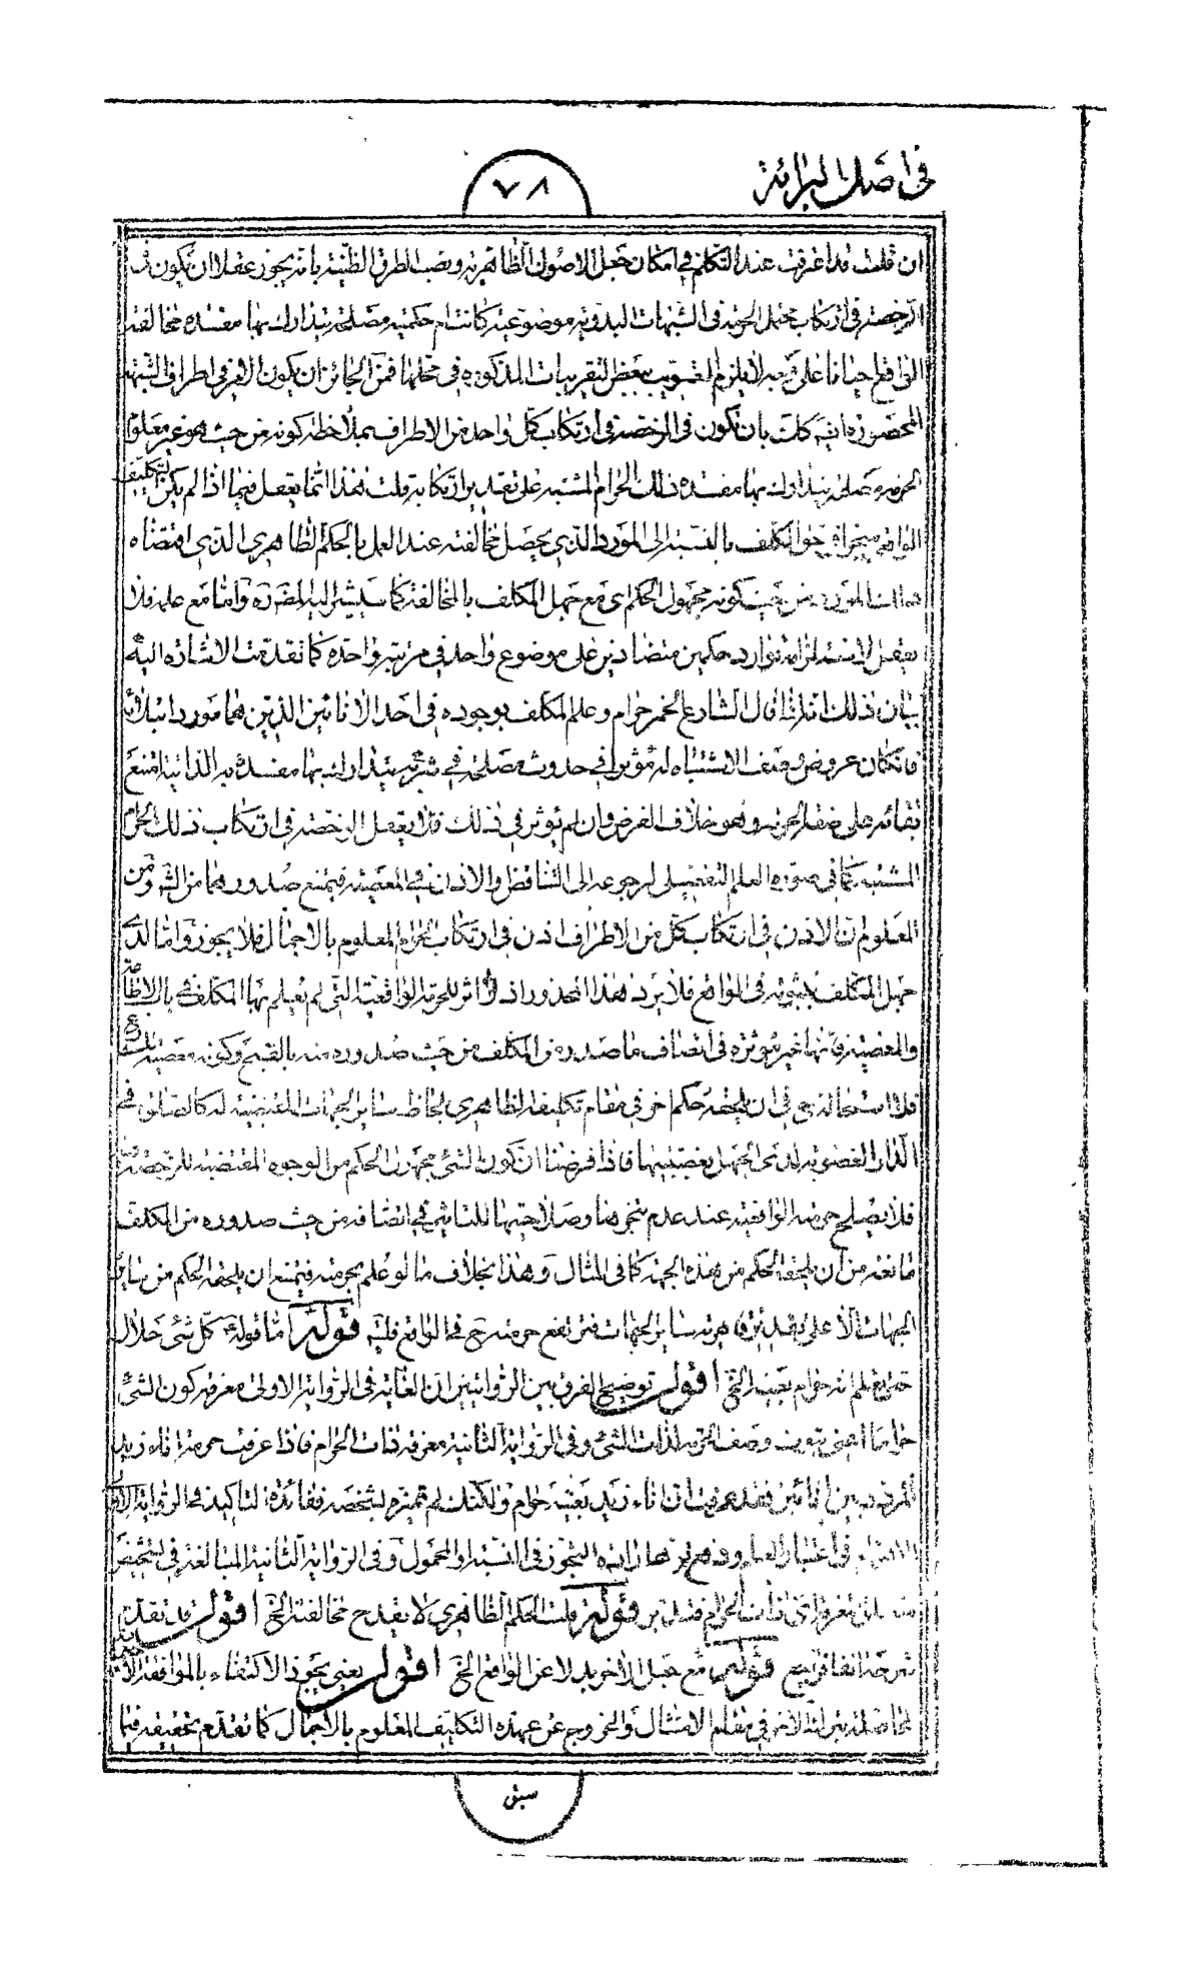 في اصل البرائة
٧٨
ان قلت قد اعرفت عند التكلم في امكان جعل الاصول الظاهرية ونصب الطرق الظنية بانه يجوز عقلا ان يكون في
الرخصة في ارتكاب محتمل الحرمة في الشبهات البدوية موضوعية كانت ام حكمية مصلحة يتدارك بها مفسدة مخالفة
الواقع احيانا على وجه لا يلزم التصويب ببعض التقريبات المذكورة في محلها فمن الجائز ان يكون الامر في اطراف الشبهة
المحصورة ايضا كذلك بان تكون في الرخصة في ارتكاب كل واحد من الاطراف بملاحظة كونه من حيث هو غير معلوم
الحرمة مصلحة يتدارك بها مفسدة ذلك الحرام المشتبه على تقدير ارتكابه قلت هذا انما يعقل فيما اذا لم يكن التكليف
الواقعي منجزا في حق المكلف بالنسبة الى المورد الذي يحصل مخالفته عند العمل بالحكم الظاهري الذي اقتضاه
المورد من حيث كونه مجهول الحكم اي مع جهل المكلف بالمخالفة كما سيشير اليه المصنف ره واما مع علمه فلا
يعقل لاستلزامه توارد حكمين متضادين على موضوع واحد في مرتبة واحدة كما تقدمت الاشارة اليه
بيان ذلك انه اذا قال الشارع الخمر حرام وعلم المكلف بوجوده في احد الانائين الذين هما مورد ابتلائه
فان كان عروض وصف الاشتباه له مؤثرا في حدوث مصلحة في شربه يتدارك بها مفسدته الذاتية امتنع
بقائه على صفة الحرمة وهو خلاف الفرض وان لم يؤثر في ذلك فلا يعقل الرخصة في ارتكاب ذلك الحرام
المشتبه كما في صورة العلم التفصيلي لرجوعه الى التناقض والاذن في المعصية فيمتنع صدورهما من الشارع ومن
المعلوم ان الاذن في ارتكاب كل من الاطراف اذن في ارتكاب الحرام المعلوم بالاجمال فلا يجوز واما الذي
جهل المكلف بثبوته في الواقع فلا يرد هذا المحذور اذ لا اثر للحرمة الواقعية التي لم يعلم بها المكلف في باب الاطاعة
والمعصية فانها غير مؤثرة في اتصاف ما صدر من المكلف من حيث صدوره منه بالقبح وكونه معصية للشارع
فلا استحالة ح في ان يلحقه حكم اخر في مقام تكليفه الظاهري بلحاظ سائر الجهات المقتضية له كالصلوة في
الدار المغصوبة لدى الجهل بغصبيتها فاذا فرضنا ان كون الشئ مجهول الحكم من الوجوه المقتضية للرخصة
فلا يصلح حرمته الواقعية عند عدم تنجزها وصلاحيتها للتاثير في اتصافه من حيث صدوره من المكلف
مانعة من ان يلحقه الحكم من هذه الجهة كما في المثال وهذا بخلاف ما لو علم بحرمته فيمتنع ان يلحقه الحكم من سائر
الجهات الا على تقدير قاهرية سائر الجهات فترتفع حرمته ح في الواقع قوله اما قوله ع كل شئ حلال
حتى تعلم انه حرام بعينه الخ اقول توضيح الفرق بين الروايتين ان الغاية في الرواية الاولى معرفة كون الشئ
حراما اعني ثبوت وصف الحرمة لذات الشئ وفي الرواية الثانية معرفة ذات الحرام فاذا عرفت حرمة اناء زيد
المردد بين انائين فقد عرفت ان اناء زيد بعينه حرام ولكنك لم تميزه بشخصه ففائدة التاكيد في الرواية الاولى
في اعتبار العلم ودفع توهم ارادة التجوز في النسبة او المحمول وفي الرواية الثانية المبالغة في تشخيص
معرفة ذات الحرام فتدبر قوله قلت الحكم الظاهري لا يقدح مخالفته الخ اقول قد تقدم
شرحه انفا فراجع قوله مع جعل الاخر بدلا عن الواقع الخ اقول يعني يجوز الاكتفاء بالموافقة
الحاصلة بترك الاخر في مقام الامتثال والخروج عن عهدة التكليف المعلوم بالاجمال كما تقدم تحقيقه فيما
سبق